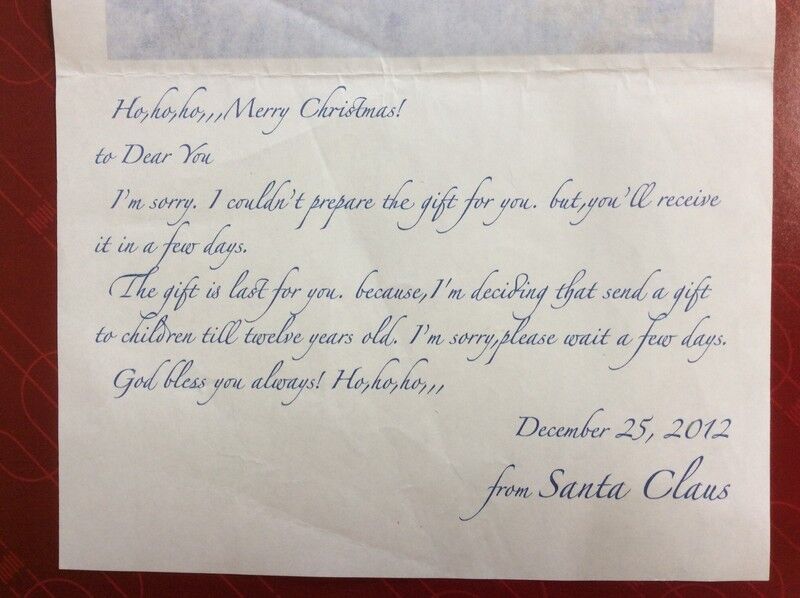 Ho,ho,ho,,,Merry Christmas!
to Dear You
I'm sorry. I couldn't prepare the gift for you. but,you'll receive
it in a few days.
The gift is last for you. because,I'm deciding that send a gift
to children till twelve years old. I'm sorry,please wait a few days.
God bless you always! Ho,ho,ho,,,
December 25, 2012
from Santa Claus